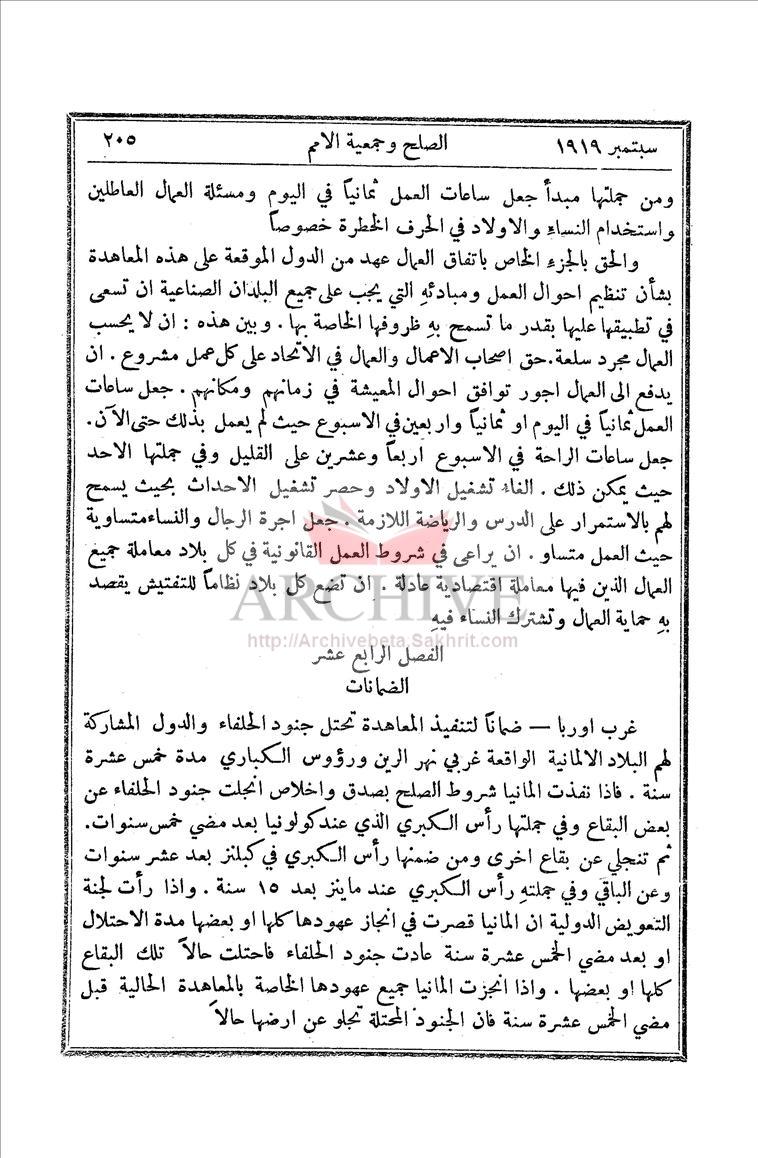 سبتمبر ١٩١٩ الصلح وجمعية الامم ٢٠٥
ومن جملتها مبدأ جعل ساعات العمل ثمانياً في اليوم ومسئلة العمال العاطلين
واستخدام النساءِ والاولاد في الحرف الخطرة خصوصاً
والحق بالجزءِ الخاص باتفاق العمال عهد من الدول الموقعة على هذه المعاهدة
بشأن تنظيم احوال العمل ومبادئهِ التي يجب على جميع البلدان الصناعية ان تسعى
في تطبيقها عليها بقدر ما تسمح بهِ ظروفها الخاصة بها . وبين هذه : ان لا يحسب
العمال مجرد سلعة . حق اصحاب الاعمال والعمال في الاتحاد على كل عمل مشروع . ان
يدفع الى العمال اجور توافق احوال المعيشة في زمانهم ومكانهم . جعل ساعات
العمل ثمانياً في اليوم او ثمانياً واربعين في الاسبوع حيث لم يعمل بذلك حتى الآن .
جعل ساعات الراحة في الاسبوع اربعاً وعشرين على القليل وفي جملتها الاحد
حيث يمكن ذلك . الغاء تشغيل الاولاد وحصر تشغيل الاحداث بحيث يسمح
لهم بالاستمرار على الدرس والرياضة اللازمة . جعل اجرة الرجال والنساء متساوية
حيث العمل متساو . ان يراعى في شروط العمل القانونية في كل بلاد معاملة جميع
العمال الذين فيها معاملة اقتصادية عادلة . ان تضع كل بلاد نظاماً للتفتيش يقصد
بهِ حماية العمال وتشترك النساء فيهِ
ARCHIVE
http://Archivebeta.Sakhrit.com
الفصل الرابع عشر
الضمانات
غرب اوربا — ضماناً لتنفيذ المعاهدة تحتل جنود الحلفاء والدول المشاركة
لهم البلاد الالمانية الواقعة غربي نهر الرين ورؤوس الكباري مدة خمس عشرة
سنة . فاذا نفذت المانيا شروط الصلح بصدق واخلاص انجلت جنود الحلفاء عن
بعض البقاع وفي جملتها رأس الكبري الذي عند كولونيا بعد مضي خمس سنوات .
ثم تنجلي عن بقاع اخرى ومن ضمنها رأس الكبري في كبلنز بعد عشر سنوات
وعن الباقي وفي جملتهِ رأس الكبري عند ماينز بعد ١٥ سنة . واذا رأت لجنة
التعويض الدولية ان المانيا قصرت في انجاز عهودها كلها او بعضها مدة الاحتلال
او بعد مضي الخمس عشرة سنة عادت جنود الحلفاء فاحتلت حالاً تلك البقاع
كلها او بعضها . واذا انجزت المانيا جميع عهودها الخاصة بالمعاهدة الحالية قبل
مضي الخمس عشرة سنة فان الجنود المحتلة تجلو عن ارضها حالاً